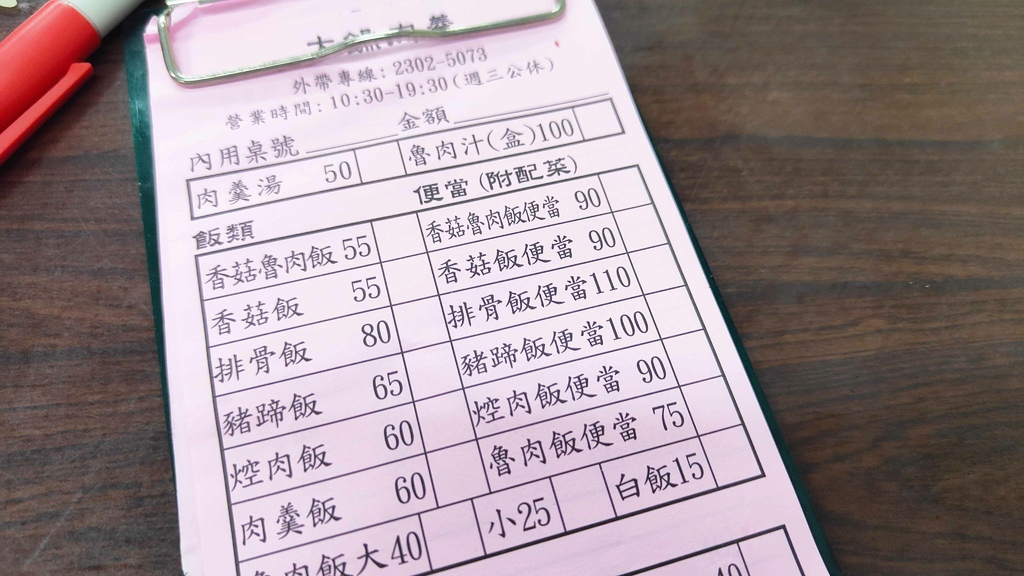 外帶專線: 2302-5073
營業時間: 10:30-19:30 (週三公休)
內用桌號 金額
肉羹湯 50 魯肉汁(盒)100
飯類 便當 (附配菜)
香菇魯肉飯 55 香菇魯肉飯便當 90
香菇飯 55 香菇飯便當 90
排骨飯 80 排骨飯便當110
豬蹄飯 65 豬蹄飯便當100
焢肉飯 60 焢肉飯便當 90
肉羹飯 60 魯肉飯便當 75
魯肉飯大40 小25 白飯15